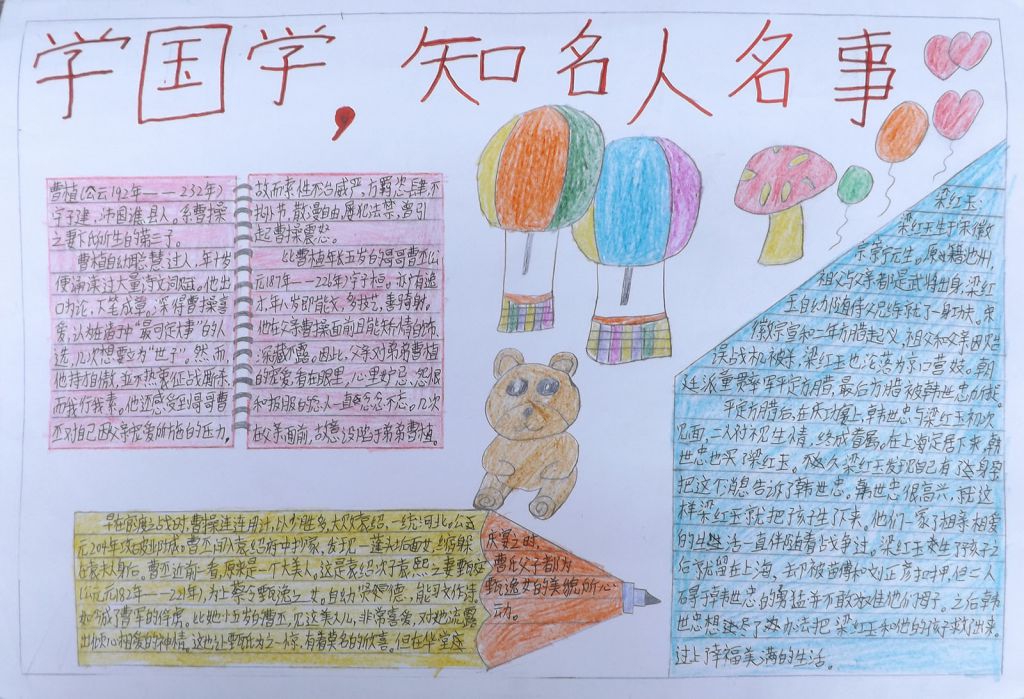 学国学，知名人名事
曹植（公云192年——232年）
字子建，沛国谯县人。系曹操
之妻卞氏所生的第三子。
曹植自幼聪慧过人，年十岁
便诵读过大量诗文词赋。他出
口为论，下笔成章。深得曹操喜
爱，认处诸子中"最可定大事"的人
选，几次想要立为"世子"。然，而
他持才自傲，并不热衷征战厮杀，
而我行我素。他还感受到哥哥曹
丕对自己因父亲宠爱所施自的压力，
故而索性不治威严，
扣小节，散漫自由，屡犯法禁，曾引
起曹操震怒。
比曹植年长五岁的哥哥曹丕（公
元187年——226年）字子桓。亦有逸
才，年八岁即能文，多技艺，善骑射。
他在父亲曹操面前且能矫情自饰，
深藏不露。因此，父亲对弟弟曹植
的宠爱，看在眼里，心里妒忌，怨恨
和报服的念头一直念念不忘。几次
在父亲面前，故意设陷于弟弟曹植。
早在官渡之战时，曹操连连用计，以少胜多，大败袁绍，一统河北。公
元204年攻破邺城，曹丕闯入袁绍府中抄家，发现一蓬头垢面女，
在袁夫人身后。曹丕近前一看，原来是一个大美人。这是袁绍次子袁熙之妻甄宓
（公元182年——221年），为上蔡令甄逸之女。自幼
如今成了曹军的俘虏。比她小五岁的曹丕，见这美人儿，非常喜爱，对她流露
出倾心相爱的神情。这也让甄氏为之一惊，有着莫名的欣喜。但在华堂盛
庆宴之时，
曹氏父子都为
甄逸女的美貌所心
动。
梁红玉：
梁红玉生于宋徽
宗崇宁元年。原籍池州，
祖父与父亲都是武将出身，梁红
玉自幼随侍父兄练就了一身功夫。宋
徽宗宣和二年方腊起义，祖父和父亲因贻
误战机被杀，梁红玉也沦落为京口营妓。朝
廷派童贯率军平定方腊，最后方腊被韩世忠所捉。
平定方腊后，在庆功宴上，韩世忠与梁红玉初次
见面，二人对视生情，终成眷属。在上海定居下来，韩
世忠也买了梁红玉。不久梁红玉发现自己有了身孕，
把这个消息告诉了韩世忠。韩世忠很高兴，就这
样梁红玉就把孩子生了下来。他们一家子相亲相爱
的生活一直伴随着战争过。梁红玉来生了孩子之
后就留在上海，去却被苗傅和刘正彦扣押，但二人
碍于韩世忠的勇猛并不敢放佳他们母子。之后韩
世忠想尽了办法把梁红玉和他的孩子救了出来。
过上了幸福美满的生活。